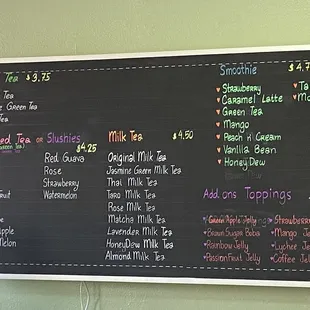 Tea $3.75
Tea
Green Tea
Tea
Tea or Slushies
Green Tea)
$4.25
Red Guava
Rose
Strawberry
Watermelon
Fruit
Apple
Melon
Milk Tea $4.50
Original Milk Tea
Jasmine Green Milk Tea
Thai Milk Tea
Taro Milk Tea
Rose Milk Tea
Matcha Milk Tea
Lavender Milk Tea
HoneyDew Milk Tea
Almond Milk Tea
Smoothie $4.7
♥ Strawberry
♥ Caramel Latte
♥ Green Tea
♥ Mango
♥ Peach n' Cream
♥ Vanilla Bean
♥ Honey Dew
♥ Ta
♥ Ma
Add ons Toppings
Green Apple Jelly
Brown Sugar Boba
Rainbow Jelly
Passion Fruit Jelly
Strawberry
Mango Je
Lychee Je
Coffee Jel